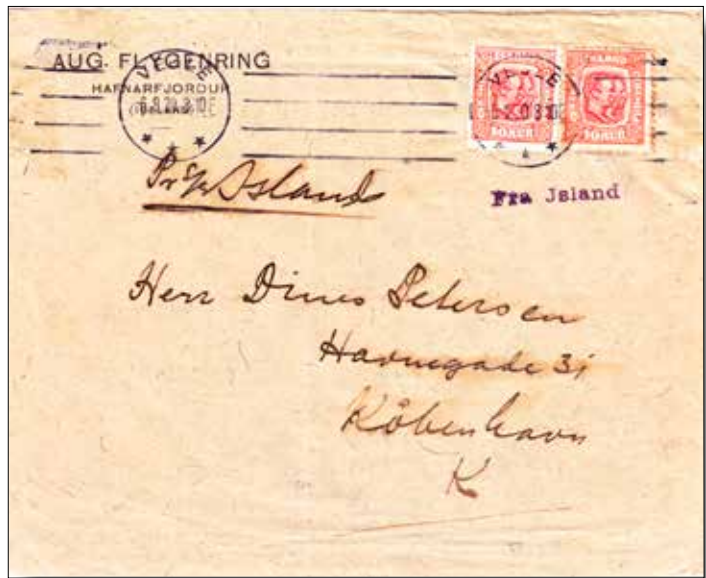 AUG. FLYGENRING
HAFNARFJORDUR
VEJLE
VEJLE
10 AUR
10 AUR
Pr s/s Island
Fra Jsland
Herr Dines Petersen
Havnegade 31
København
K